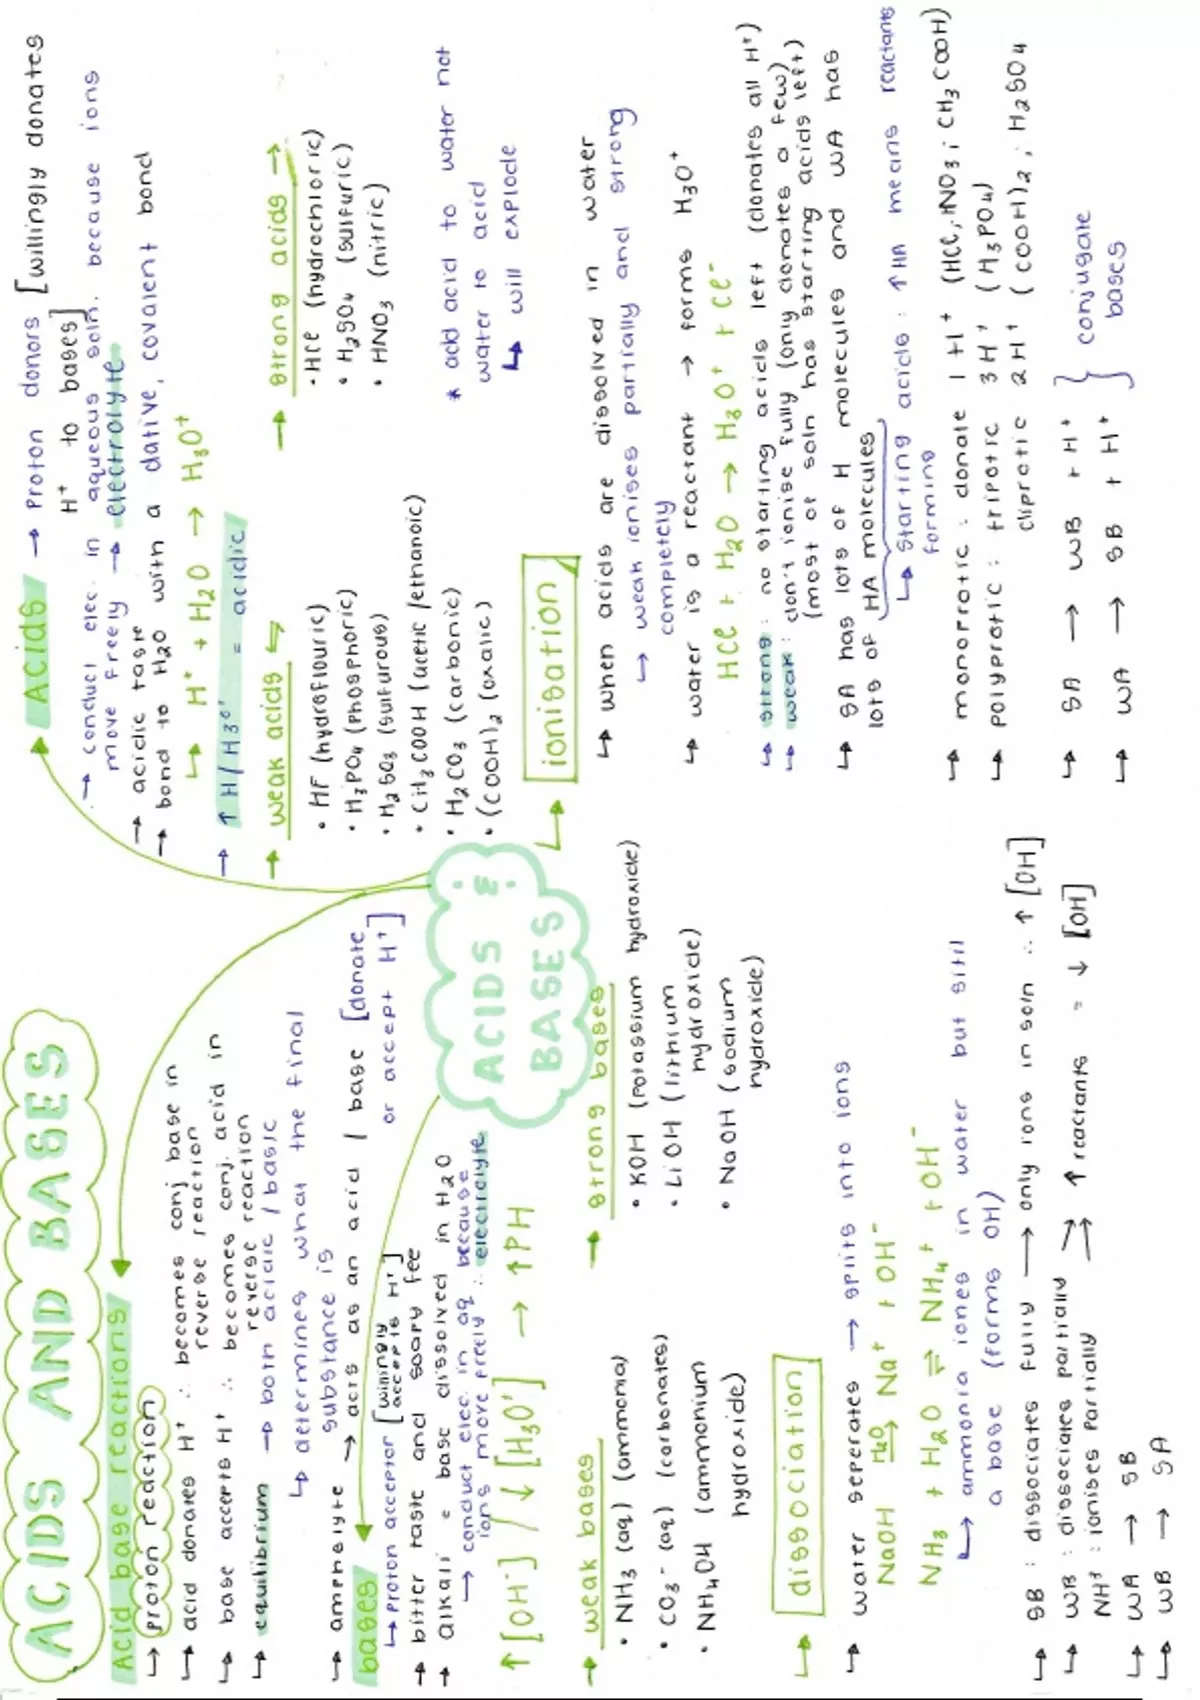 ACIDS AND BASES
Acid base reactions
↳ proton reaction
↳ acid donates H⁺ ∴ becomes conj base in
reverse reaction
↳ base accepts H⁺ ∴ becomes conj. acid in
reverse reaction
↳ equilibrium → both acidic / basic
↳ determines what the final
substance is
→ ampholyte → acts as an acid / base [donate
or accept H⁺]
bases
↳ Proton acceptor [willingly
accepts H⁺]
→ bitter taste and soapy fee
→ alkali = base dissolved in H₂O
→ conduct elec. in aq because
ions move freely ∴ electrolyte
↑ [OH⁻] / ↓ [H₃O⁺] → ↑PH
→ weak bases
• NH₃ (aq) (ammonia)
• CO₃⁻ (aq) (carbonates)
• NH₄OH (ammonium
hydroxide)
→ strong bases
• KOH (potassium hydroxide)
• LiOH (lithium
hydroxide)
• NaOH (sodium
hydroxide)
↳ dissociation
↳ water seperates → splits into ions
NaOH H₂O→ Na⁺ + OH⁻
NH₃ + H₂O ⇌ NH₄⁺ + OH⁻
↳ ammonia iones in water but still
a base (forms OH)
↳ SB : dissociates fully → only ions in soln ∴ ↑ [OH]
↳ WB : dissociates partially ⇒ ↑ reactants = ↓ [OH]
NH³ : ionises partially
↳ WA → SB
↳ WB → SA
ACIDS &
BASES
ACIDS → Proton donors [willingly donates
H⁺ to bases]
→ conduct elec. in aqueous soln. because ions
move freely → electrolyte
→ acidic taste
→ bond to H₂O with a dative, covalent bond
↳ H⁺ + H₂O → H₃O⁺
→ ↑ H / H₃O⁺ = acidic
→ weak acids ⇌
• HF (hydroflouric)
• H₃PO₄ (phosphoric)
• H₂SO₃ (sulfurous)
• CH₃COOH (acetic / ethanoic)
• H₂CO₃ (carbonic)
• (COOH)₂ (oxalic)
→ strong acids →
• HCl (hydrochloric)
• H₂SO₄ (sulfuric)
• HNO₃ (nitric)
* add acid to water not
water to acid
↳ will explode
↳ ionisation
↳ when acids are dissolved in water
↳ weak ionises partially and strong
completely
↳ water is a reactant → forms H₃O⁺
HCl + H₂O → H₃O⁺ + Cl⁻
↳ strong : no starting acids left (donates all H⁺)
↳ weak : don't ionise fully (only donates a few)
(most of soln has starting acids left)
↳ SA has lots of H molecules and WA has
lots of HA molecules
↳ starting acids : ↑HA means reactants
forming
↳ monoprotic : donate 1 H⁺ (HCl, HNO₃, CH₃COOH)
↳ polyprotic : triprotic 3H⁺ (H₃PO₄)
diprotic 2H⁺ (COOH)₂, H₂SO₄
↳ SA → WB + H⁺
↳ WA → SB + H⁺
} conjugate
bases